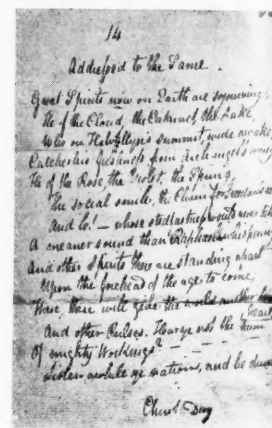 14
Addressed to the Same.
Great Spirits now on Earth are sojourning;
He of the Cloud, the Cataract, the Lake,
Who on Helvellyn's summit wide awake
Catches his freshness from Archangel's wing
He of the Rose, the Violet, the Spring,
The social smile, the Chain for freedom's
And lo! — whose stedfastness would never
A meaner sound than Raphael's whispering
And other spirits there are standing apart
Upon the forehead of the age to come;
These, these will give the world another heart
And other Pulses. Hear ye not the hum
Of mighty Workings? — —
Listen awhile ye nations, and be